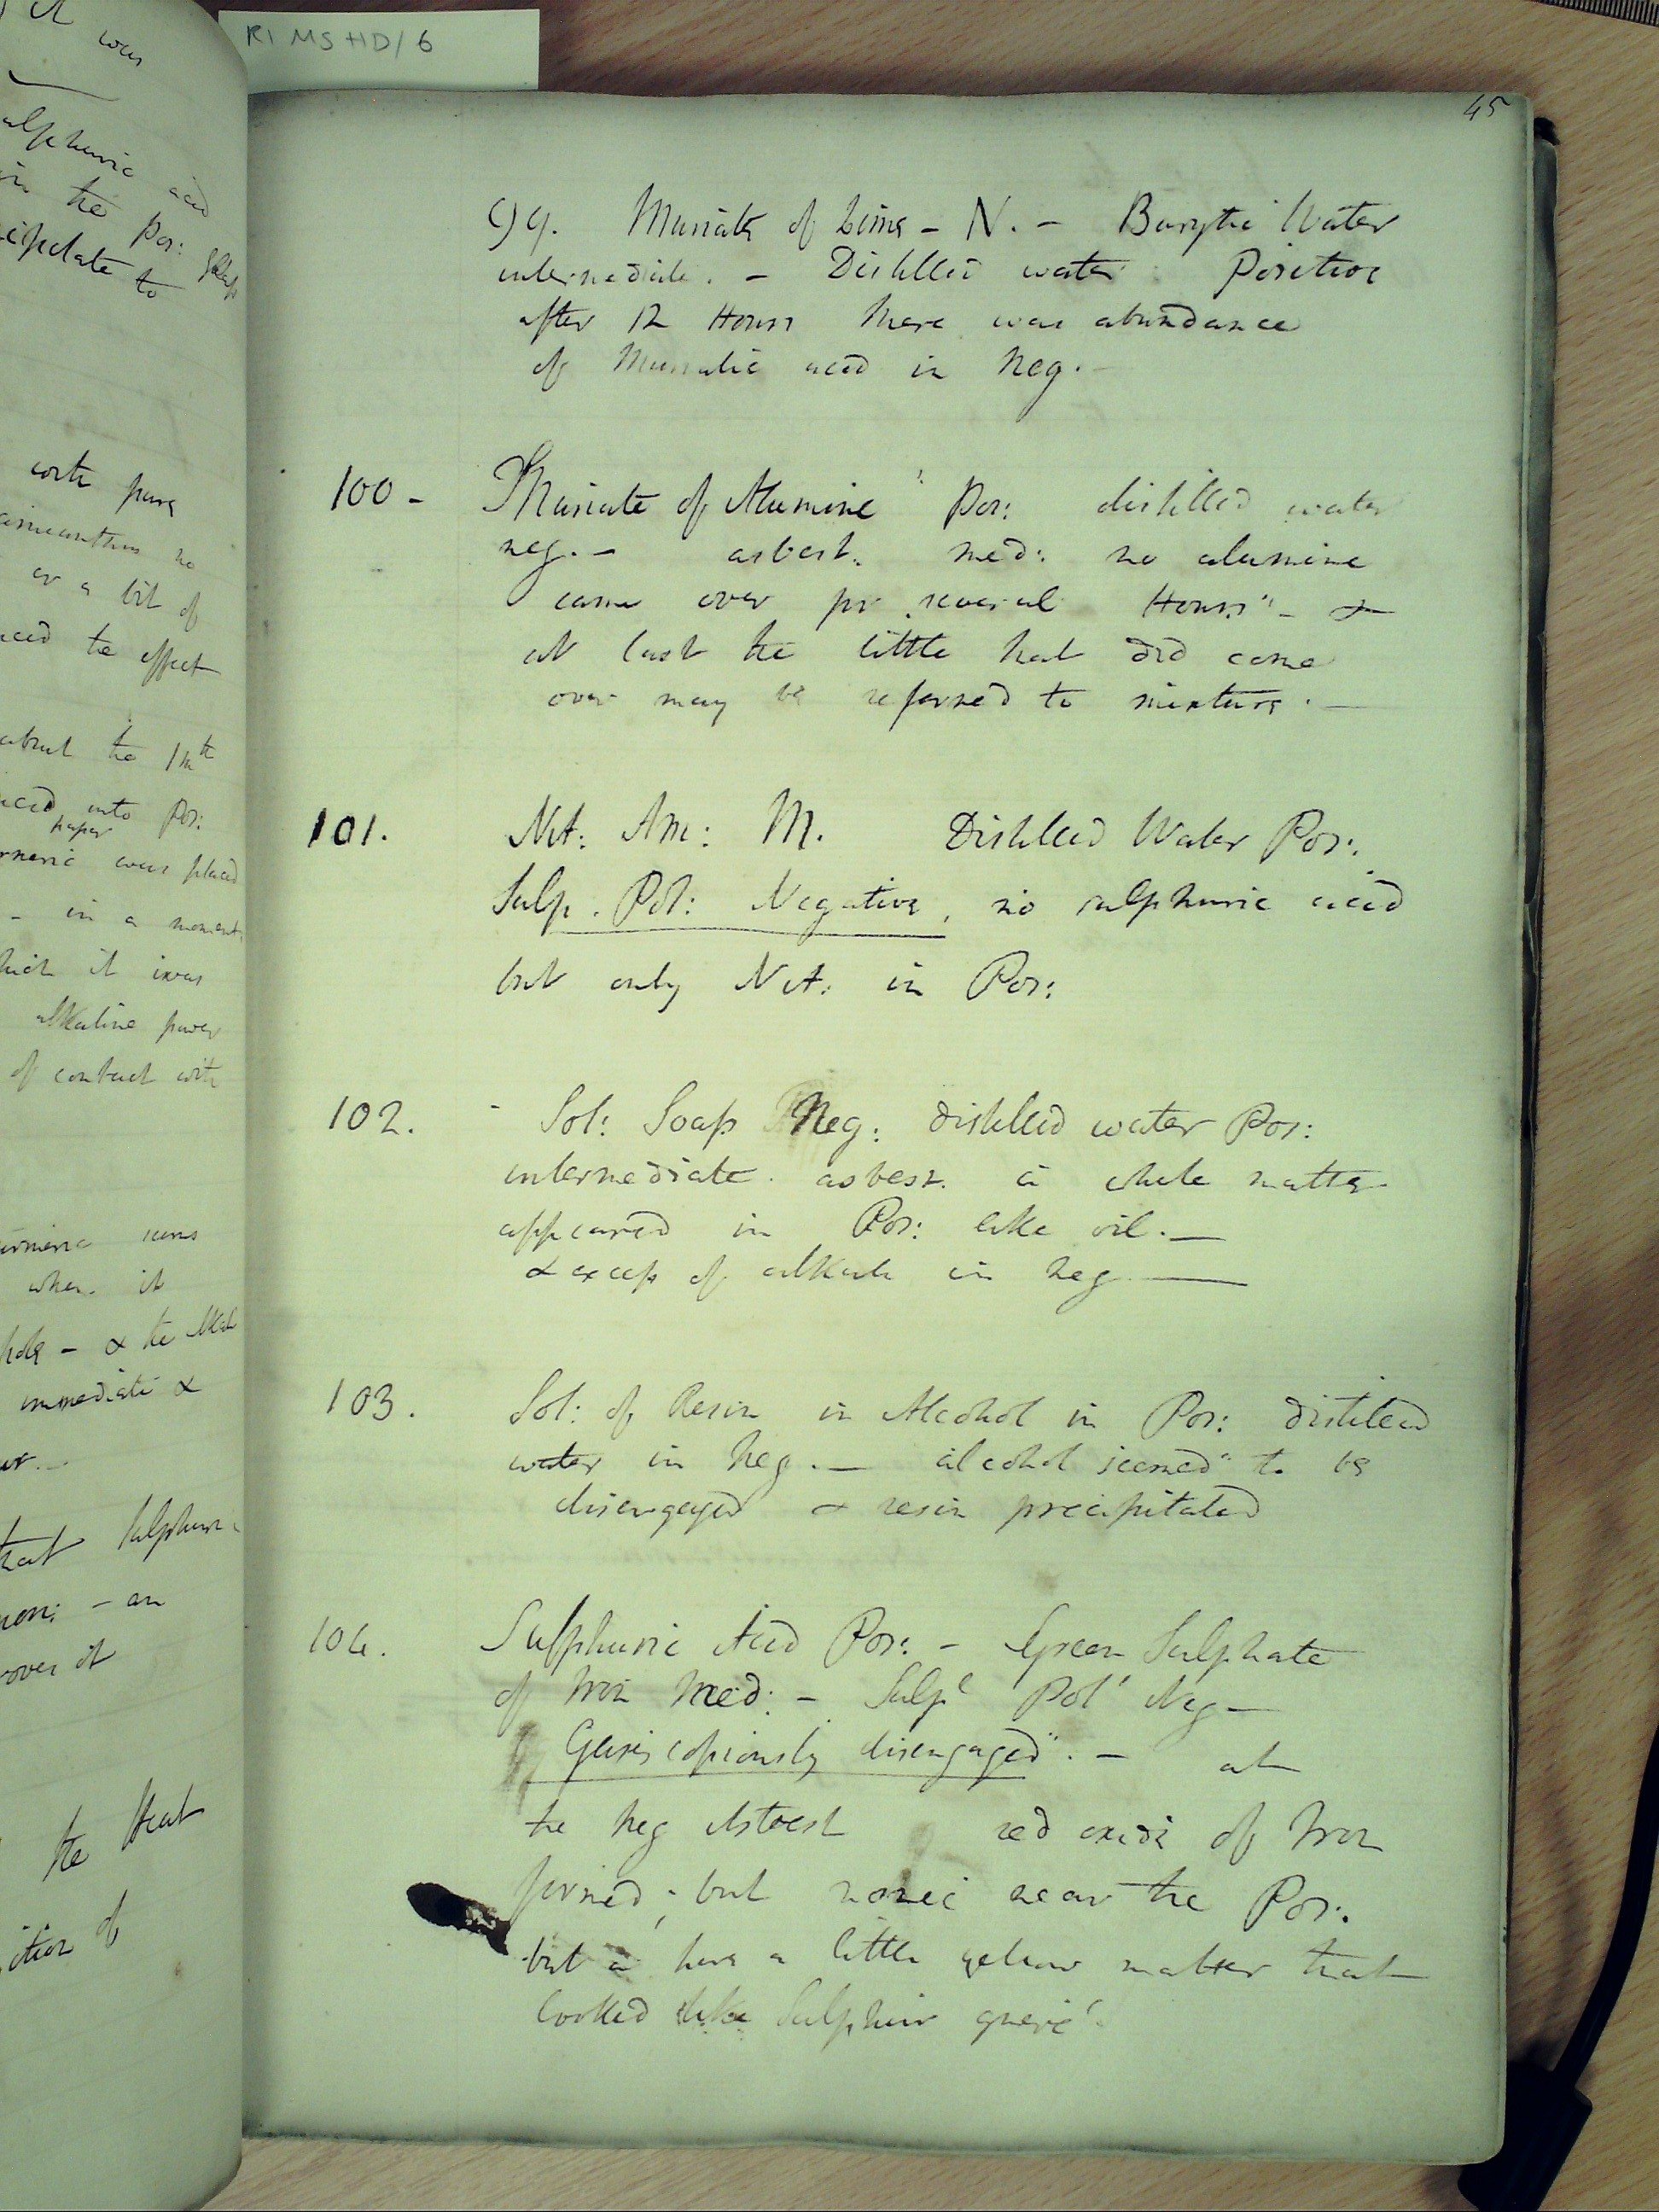 RI MS HD/6
it was
sulphuric acid
in the Pos: glass
precipitate to
with pure
amianthus no
or a bit of
the effect
about the
into Pos:
paper
was placed
- in a moment
which it was
alkaline power
of contact with
when it
- & the
immediate &
that Sulphuric
- an
over it
the Heat
of
45
99. Muriate of Lime - N. - Barytic Water
intermediate. - Distilled water Positive
after 12 Hours there was abundance
of Muriatic acid in Neg. -
100 - Muriate of Alumine Pos: distilled water
neg. - asbest. med: no alumine
came over for several Hours - &
at last the little that did come
over may be referred to mixture. -
101. Nit: Am: M. Distilled Water Pos:.
Sulp. Pot: Negative, no sulphuric acid
but only Nit: in Pos:
102. - Sol: Soap Neg: distilled water Pos:
intermediate. asbest. a white matter
appeared in Pos: like oil. -
& excess of alkali in neg -
103. Sol: of Resin in Alcohol in Pos: distilled
water in Neg. - alcohol seemed to be
disengaged & resin precipitated
104. Sulphuric Acid Pos: - Green Sulphate
of Iron Med: - Sulp Pot Neg -
Gasis copiously disengaged. - at
the neg Asbest red oxide of Iron
formed; but none near the Pos:.
but a little yellow matter that
looked like Sulphur